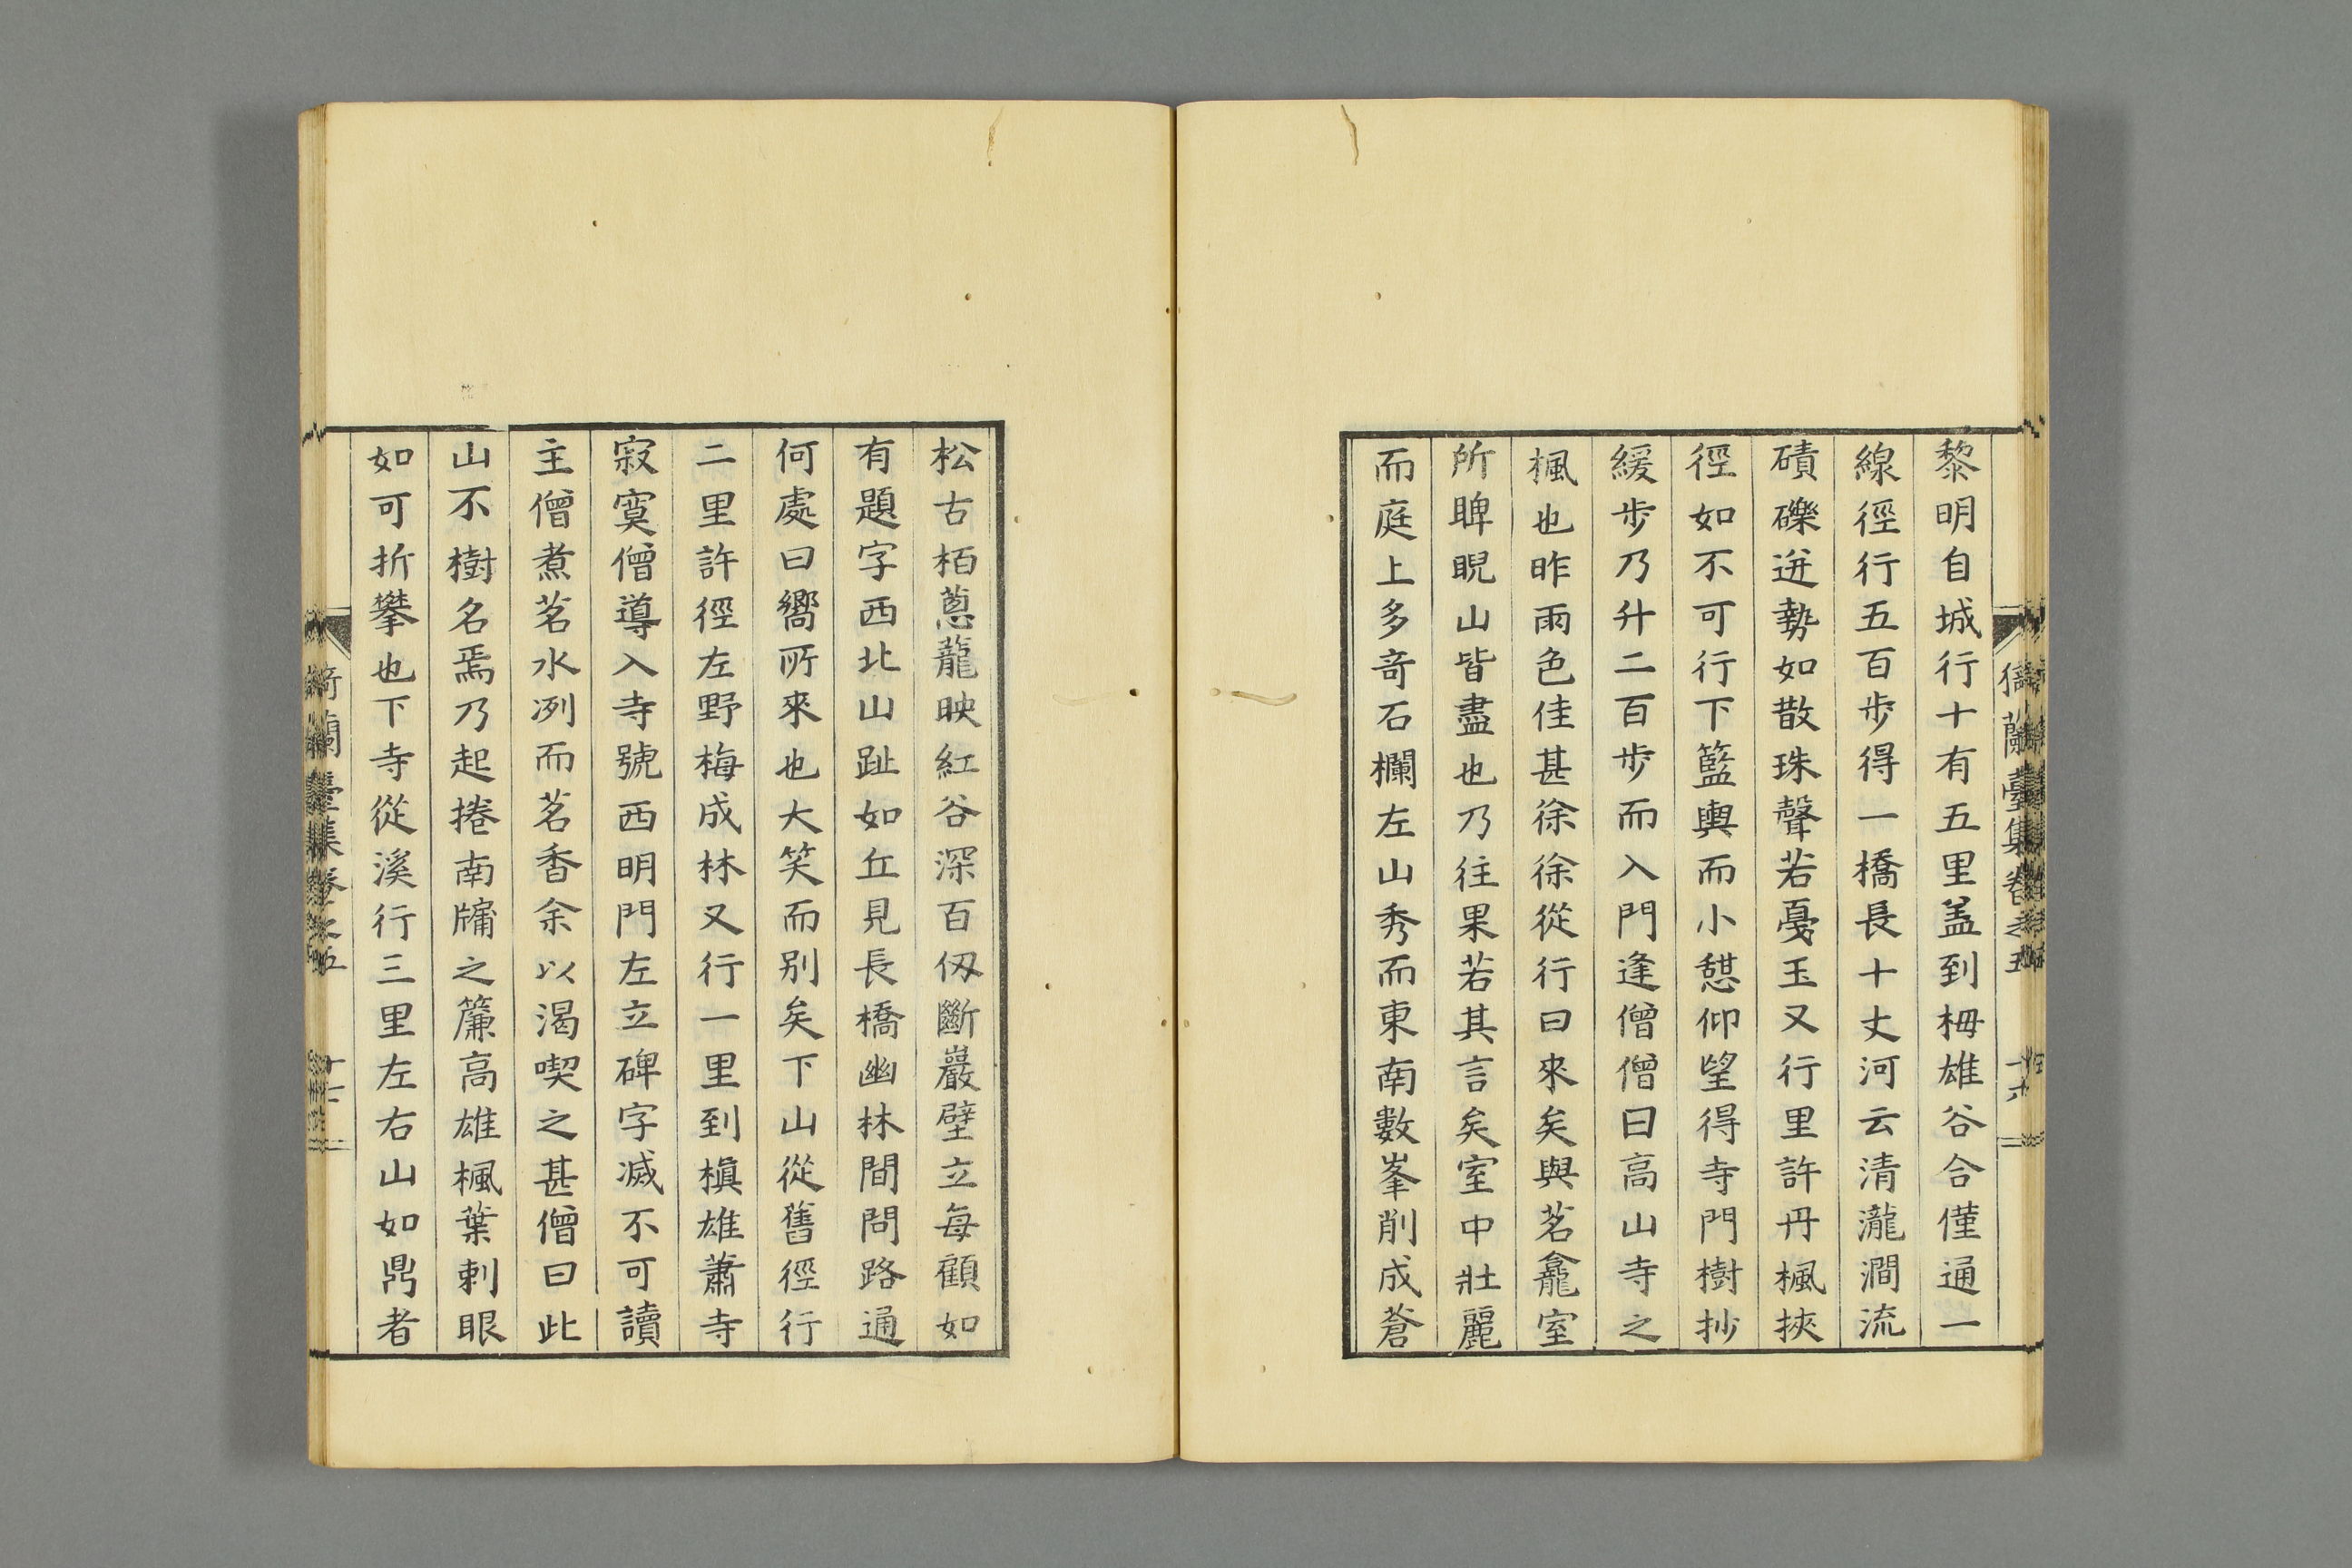 黎明自城行十有五里盖到栂雄谷合僅通一
線徑行五百步得一橋長十丈河云清瀧澗流
磧礫迸勢如散珠聲若戞玉又行里許丹楓挾
徑如不可行下籃輿而小憇仰望得寺門樹抄
緩步乃升二百步而入門逢僧僧曰高山寺之
楓也昨雨色佳甚徐徐從行曰來矣與茗龕室
所睥睨山皆盡也乃往果若其言矣室中壯麗
而庭上多竒石欄左山秀而東南數峯削成蒼
松古栢蔥蘢映紅谷深百仭斷巖壁立每顧如
有題字西北山趾如丘見長橋幽林間問路通
何處曰嚮所來也大笑而別矣下山從舊徑行
二里許徑左野梅成林又行一里到槙雄蕭寺
寂寞僧導入寺號西明門左立碑字滅不可讀
主僧煮茗水冽而茗香余以渴喫之甚僧曰此
山不樹名焉乃起捲南牖之簾高雄楓葉刺眼
如可折攀也下寺從溪行三里左右山如鼎者
蘭臺集卷之五